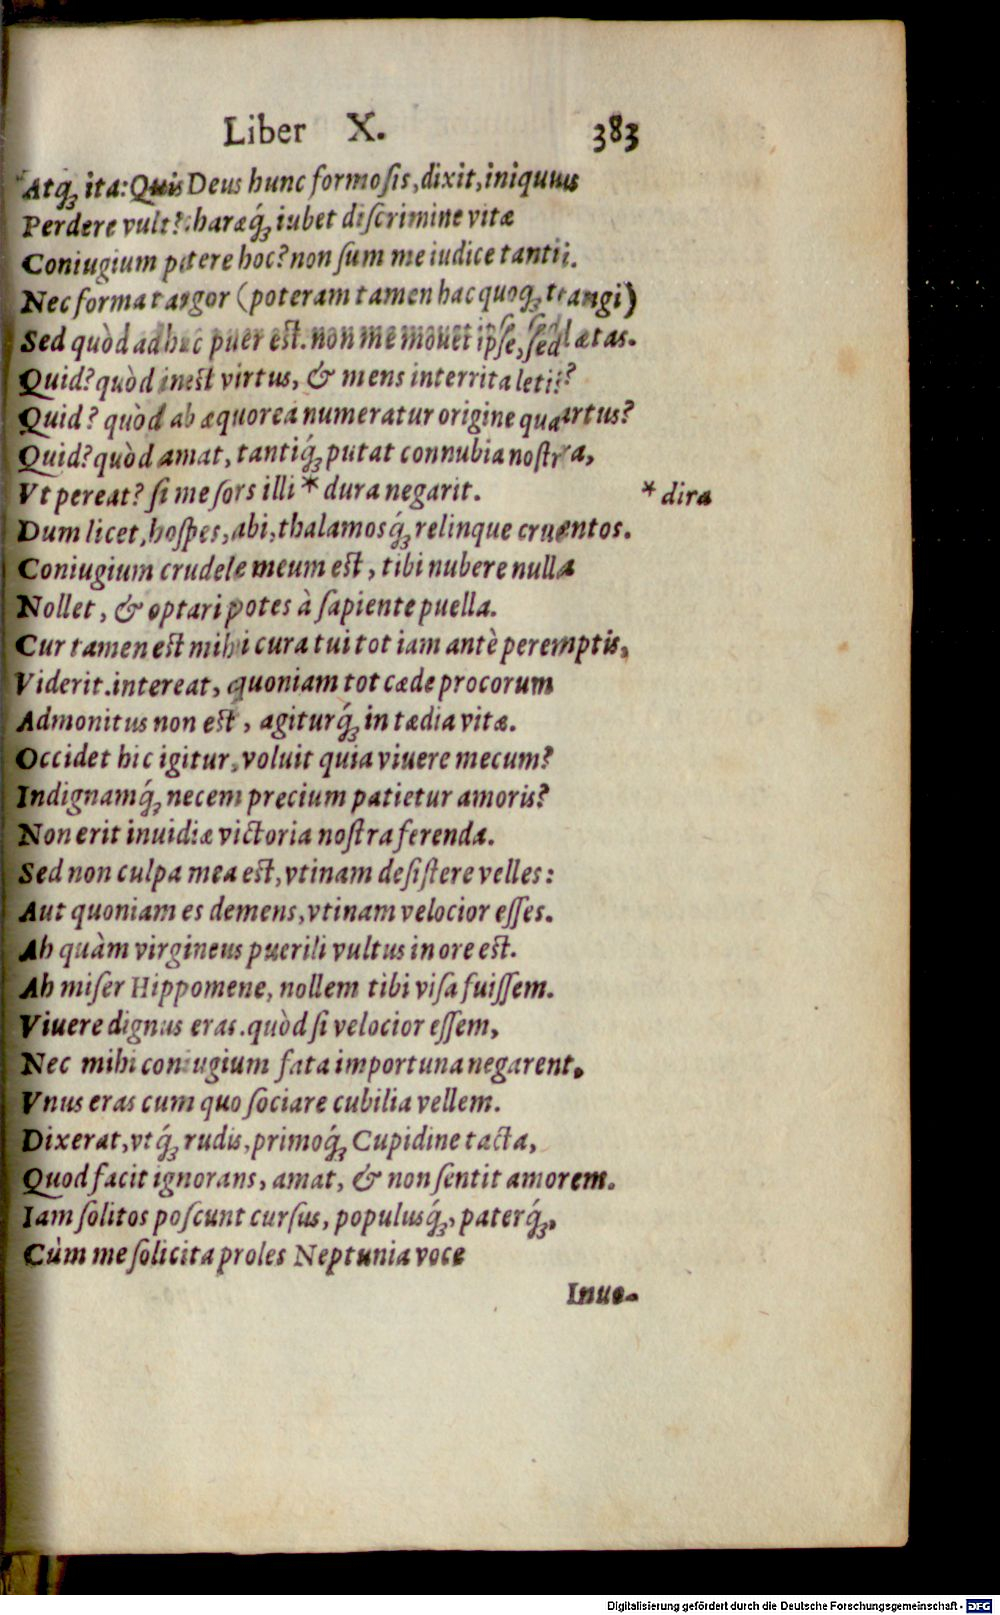 Liber X. 383
Atq́ꝫ ita: Quis Deus hunc formosis, dixit, iniquus
Perdere vult? charæq́ꝫ iubet discrimine vitæ
Coniugium petere hoc? non sum me iudice tantii.
Nec forma tangor (poteram tamen hac quoqꝫ tangi)
Sed quòd adhuc puer est. non me mouet ipse, sed ætas.
Quid? quòd inest virtus, & mens interrita leti?
Quid? quòd ab æquorea numeratur origine quartus?
Quid? quòd amat, tantiq́ꝫ putat connubia nostra,
Vt pereat? si me sors illi * dura negarit.
* dira
Dum licet, hospes, abi, thalamosq́ꝫ relinque cruentos.
Coniugium crudele meum est, tibi nubere nulla
Nollet, & optari potes à sapiente puella.
Cur tamen est mihi cura tui tot iam antè peremptis,
Viderit. intereat, quoniam tot cæde procorum
Admonitus non est, agiturq́ꝫ in tædia vitæ.
Occidet hic igitur, voluit quia viuere mecum?
Indignamq́ꝫ necem precium patietur amoris?
Non erit inuidiæ victoria nostra ferenda.
Sed non culpa mea est, vtinam desistere velles:
Aut quoniam es demens, vtinam velocior esses.
Ah quàm virgineus puerili vultus in ore est.
Ah miser Hippomene, nollem tibi visa fuissem.
Viuere dignus eras. quòd si velocior essem,
Nec mihi coniugium fata importuna negarent,
Vnus eras cum quo sociare cubilia vellem.
Dixerat, vtq́ꝫ rudis, primoq́ꝫ Cupidine tacta,
Quod facit ignorans, amat, & non sentit amorem.
Iam solitos poscunt cursus, populusq́ꝫ, paterq́ꝫ,
Cùm me solicita proles Neptunia voce
Inuo-
Digitalisierung gefördert durch die Deutsche Forschungsgemeinschaft - DFG